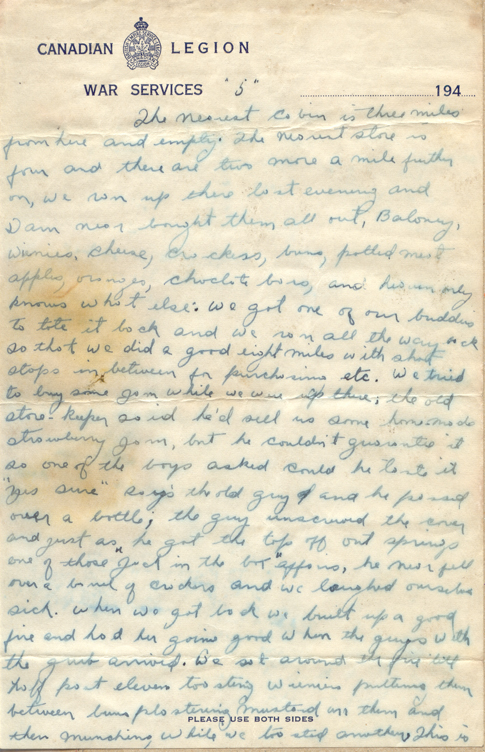 CANADIAN LEGION
WAR SERVICES "5" 194
The nearest cabin is three miles
from here and empty. The nearest store is
four and there are two more a mile further
on, we ran up there last evening and
Damn near bought them all out, Baloney,
Wienies, cheese, crackers, buns, potted meat
apples, oranges, choclate bars, and heaven only
knows what else. We got one of our buddies
to tote it back and we ran all the way back
so that we did a good eight miles with short
stops in between for purchasing etc. We tried
to buy some jam while we were up there, the old
store-keeper said he'd sell us some homemade
strawberry jam, but he couldn't guarantee it
so one of the boys asked could he taste it
"yes sure" says th old guy and he passed
over a bottle, the guy unscrewed the cover
and just as he got the top off out springs
one of those "Jack in the box" affairs, he near fell
over a barrel of crackers and we laughed ourselves
sick. When we got back we built up a good
fire and had her going good when the guys with
the grub arrived. We sat around the fire till
half past eleven toasting wienies putting them
between buns plastering mustard on them and
then munching while we toasted another. This is
PLEASE USE BOTH SIDES